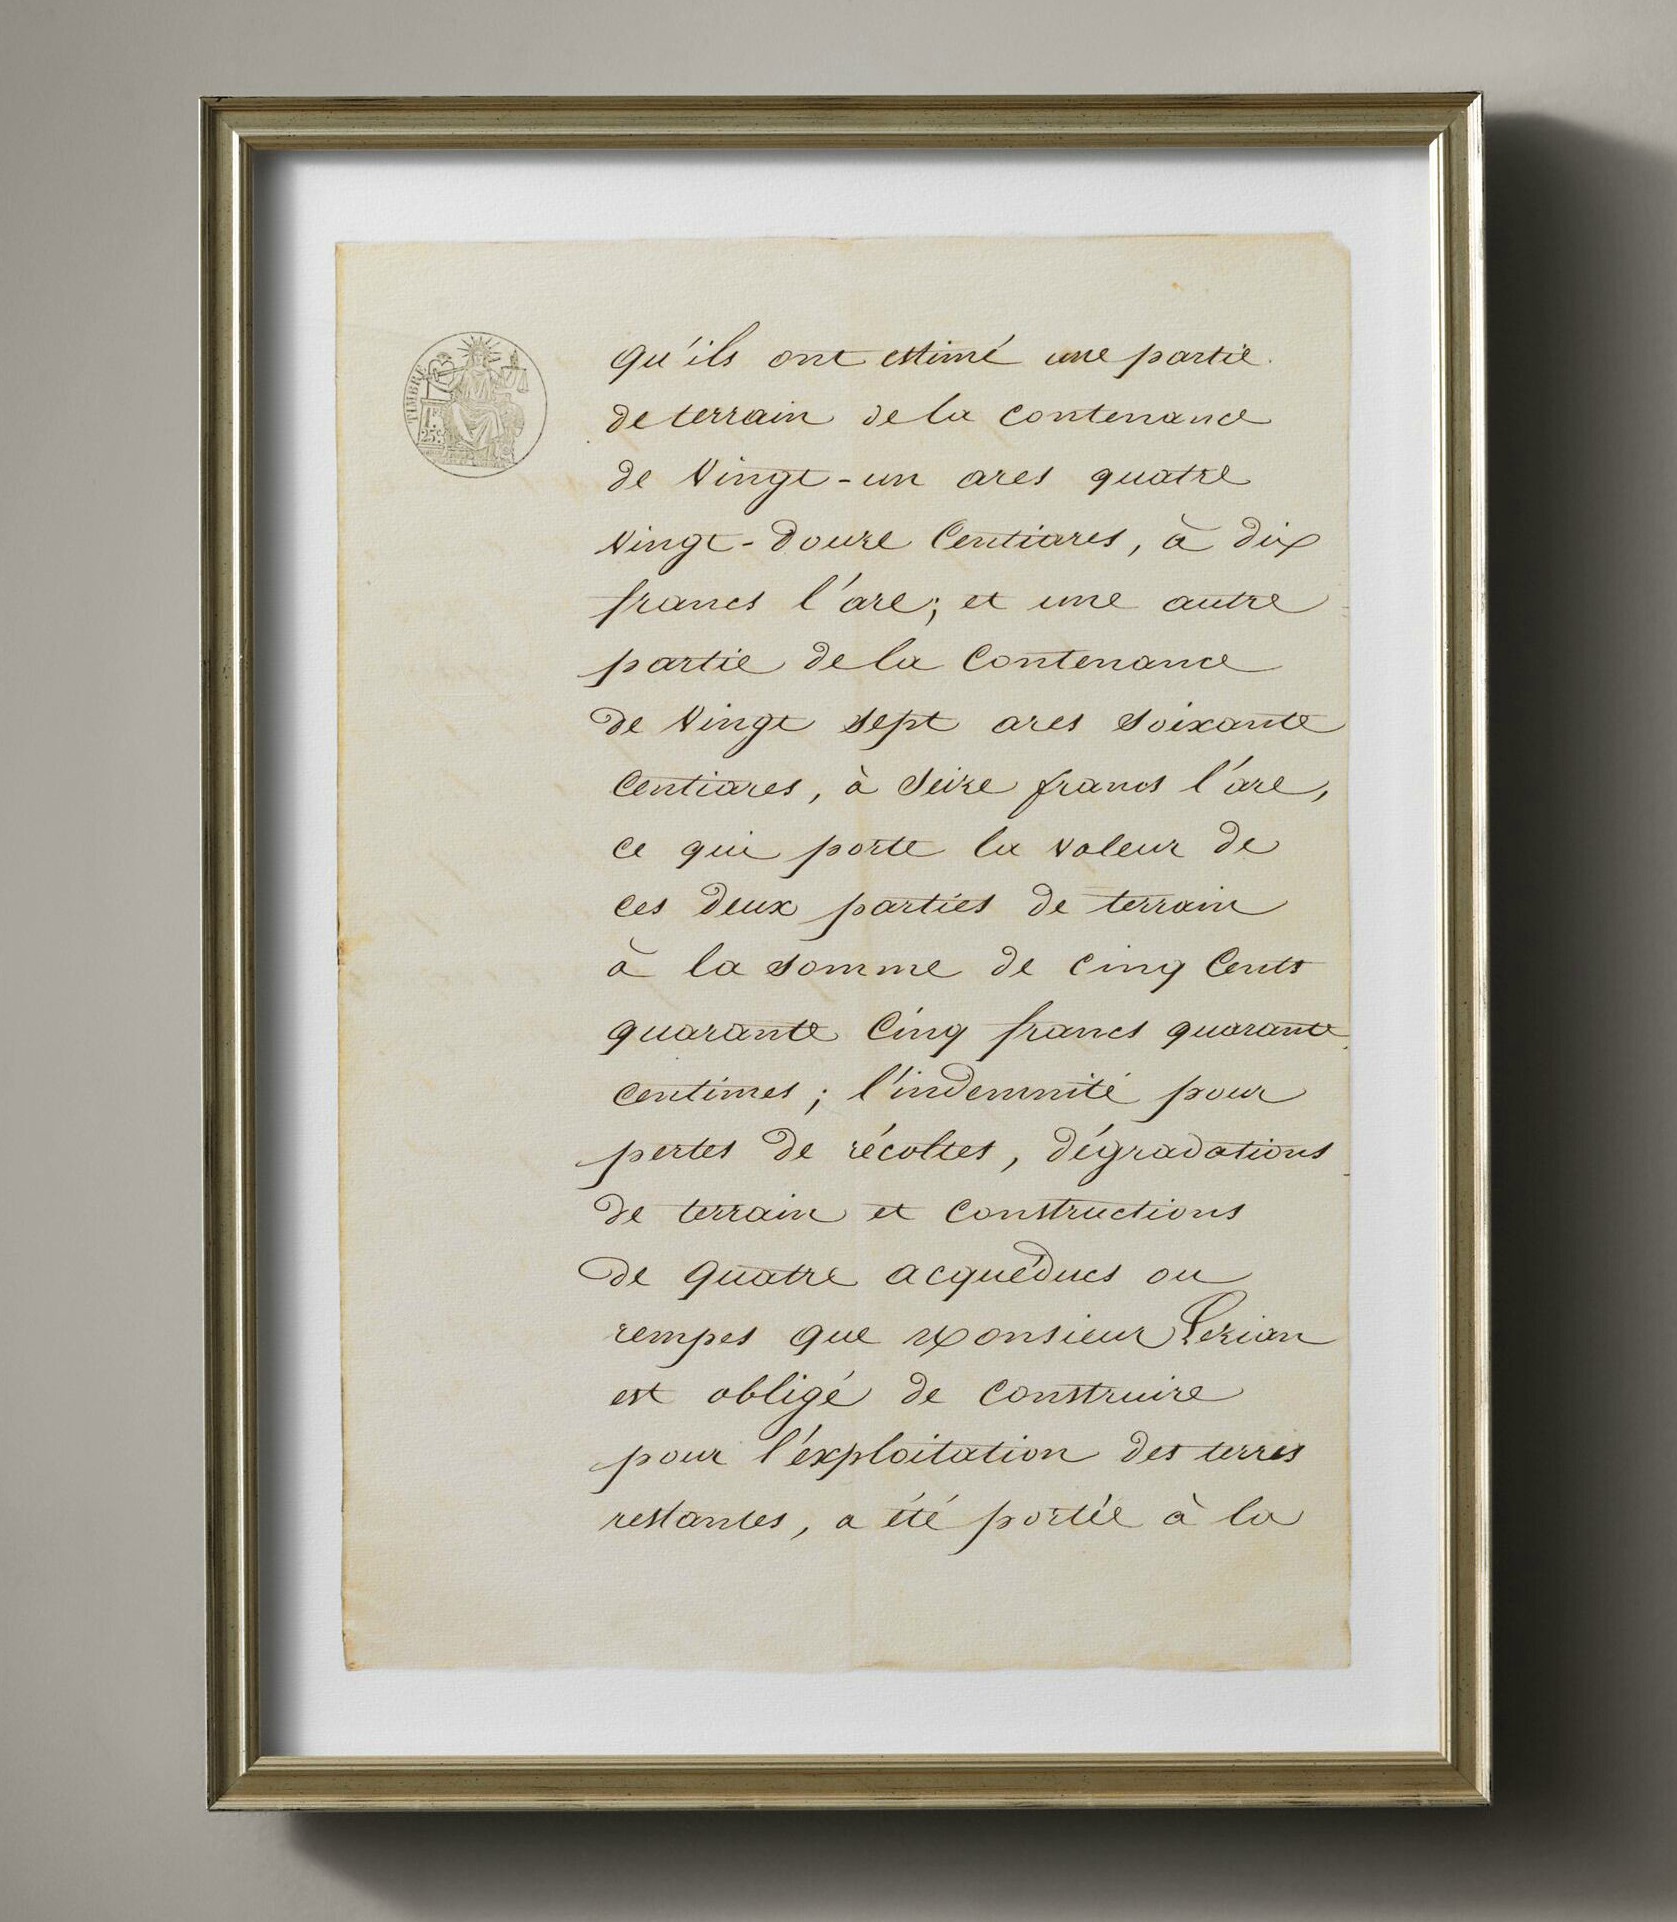 TIMBRE
25c
qu'ils ont estimé une partie
de terrain de la contenance
de Vingt-un ares quatre
Vingt-Douze Centiares, à dix
francs l'are; et une autre
partie de la Contenance
de Vingt sept ares Soixante
Centiares, à Seize francs l'are,
ce qui porte la valeur de
ces deux parties de terrain
à la somme de cinq Cents
quarante Cinq francs quarante
centimes; l'indemnité pour
pertes de récoltes, dégradations
de terrain et constructions
de quatre acquéducs ou
rempes que Monsieur
est obligé de construire
pour l'exploitation des terres
restantes, a été portée à la